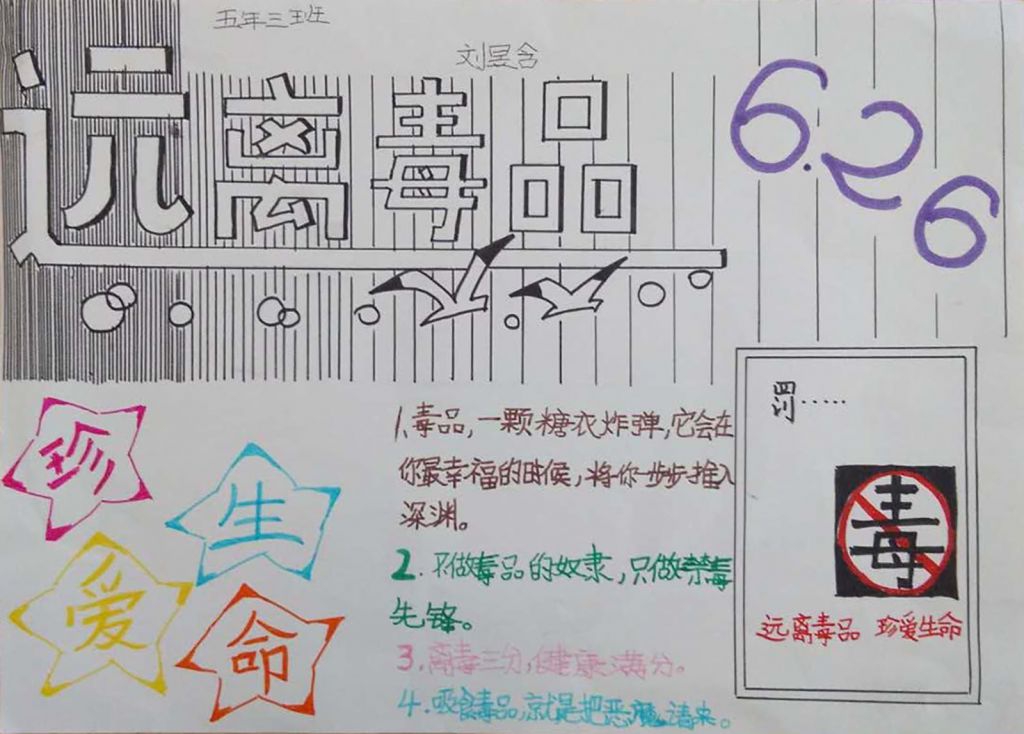 五年三班
刘昱含
远离毒品
6.26
珍
爱
生
命
1、毒品,一颗糖衣炸弹,它会在
你最幸福的时候,将你一步步推入
深渊。
2.不做毒品的奴隶,只做禁毒
先锋。
3.离毒三分,健康满分。
4.吸食毒品,就是把恶魔请来。
罚……
毒
远离毒品 珍爱生命